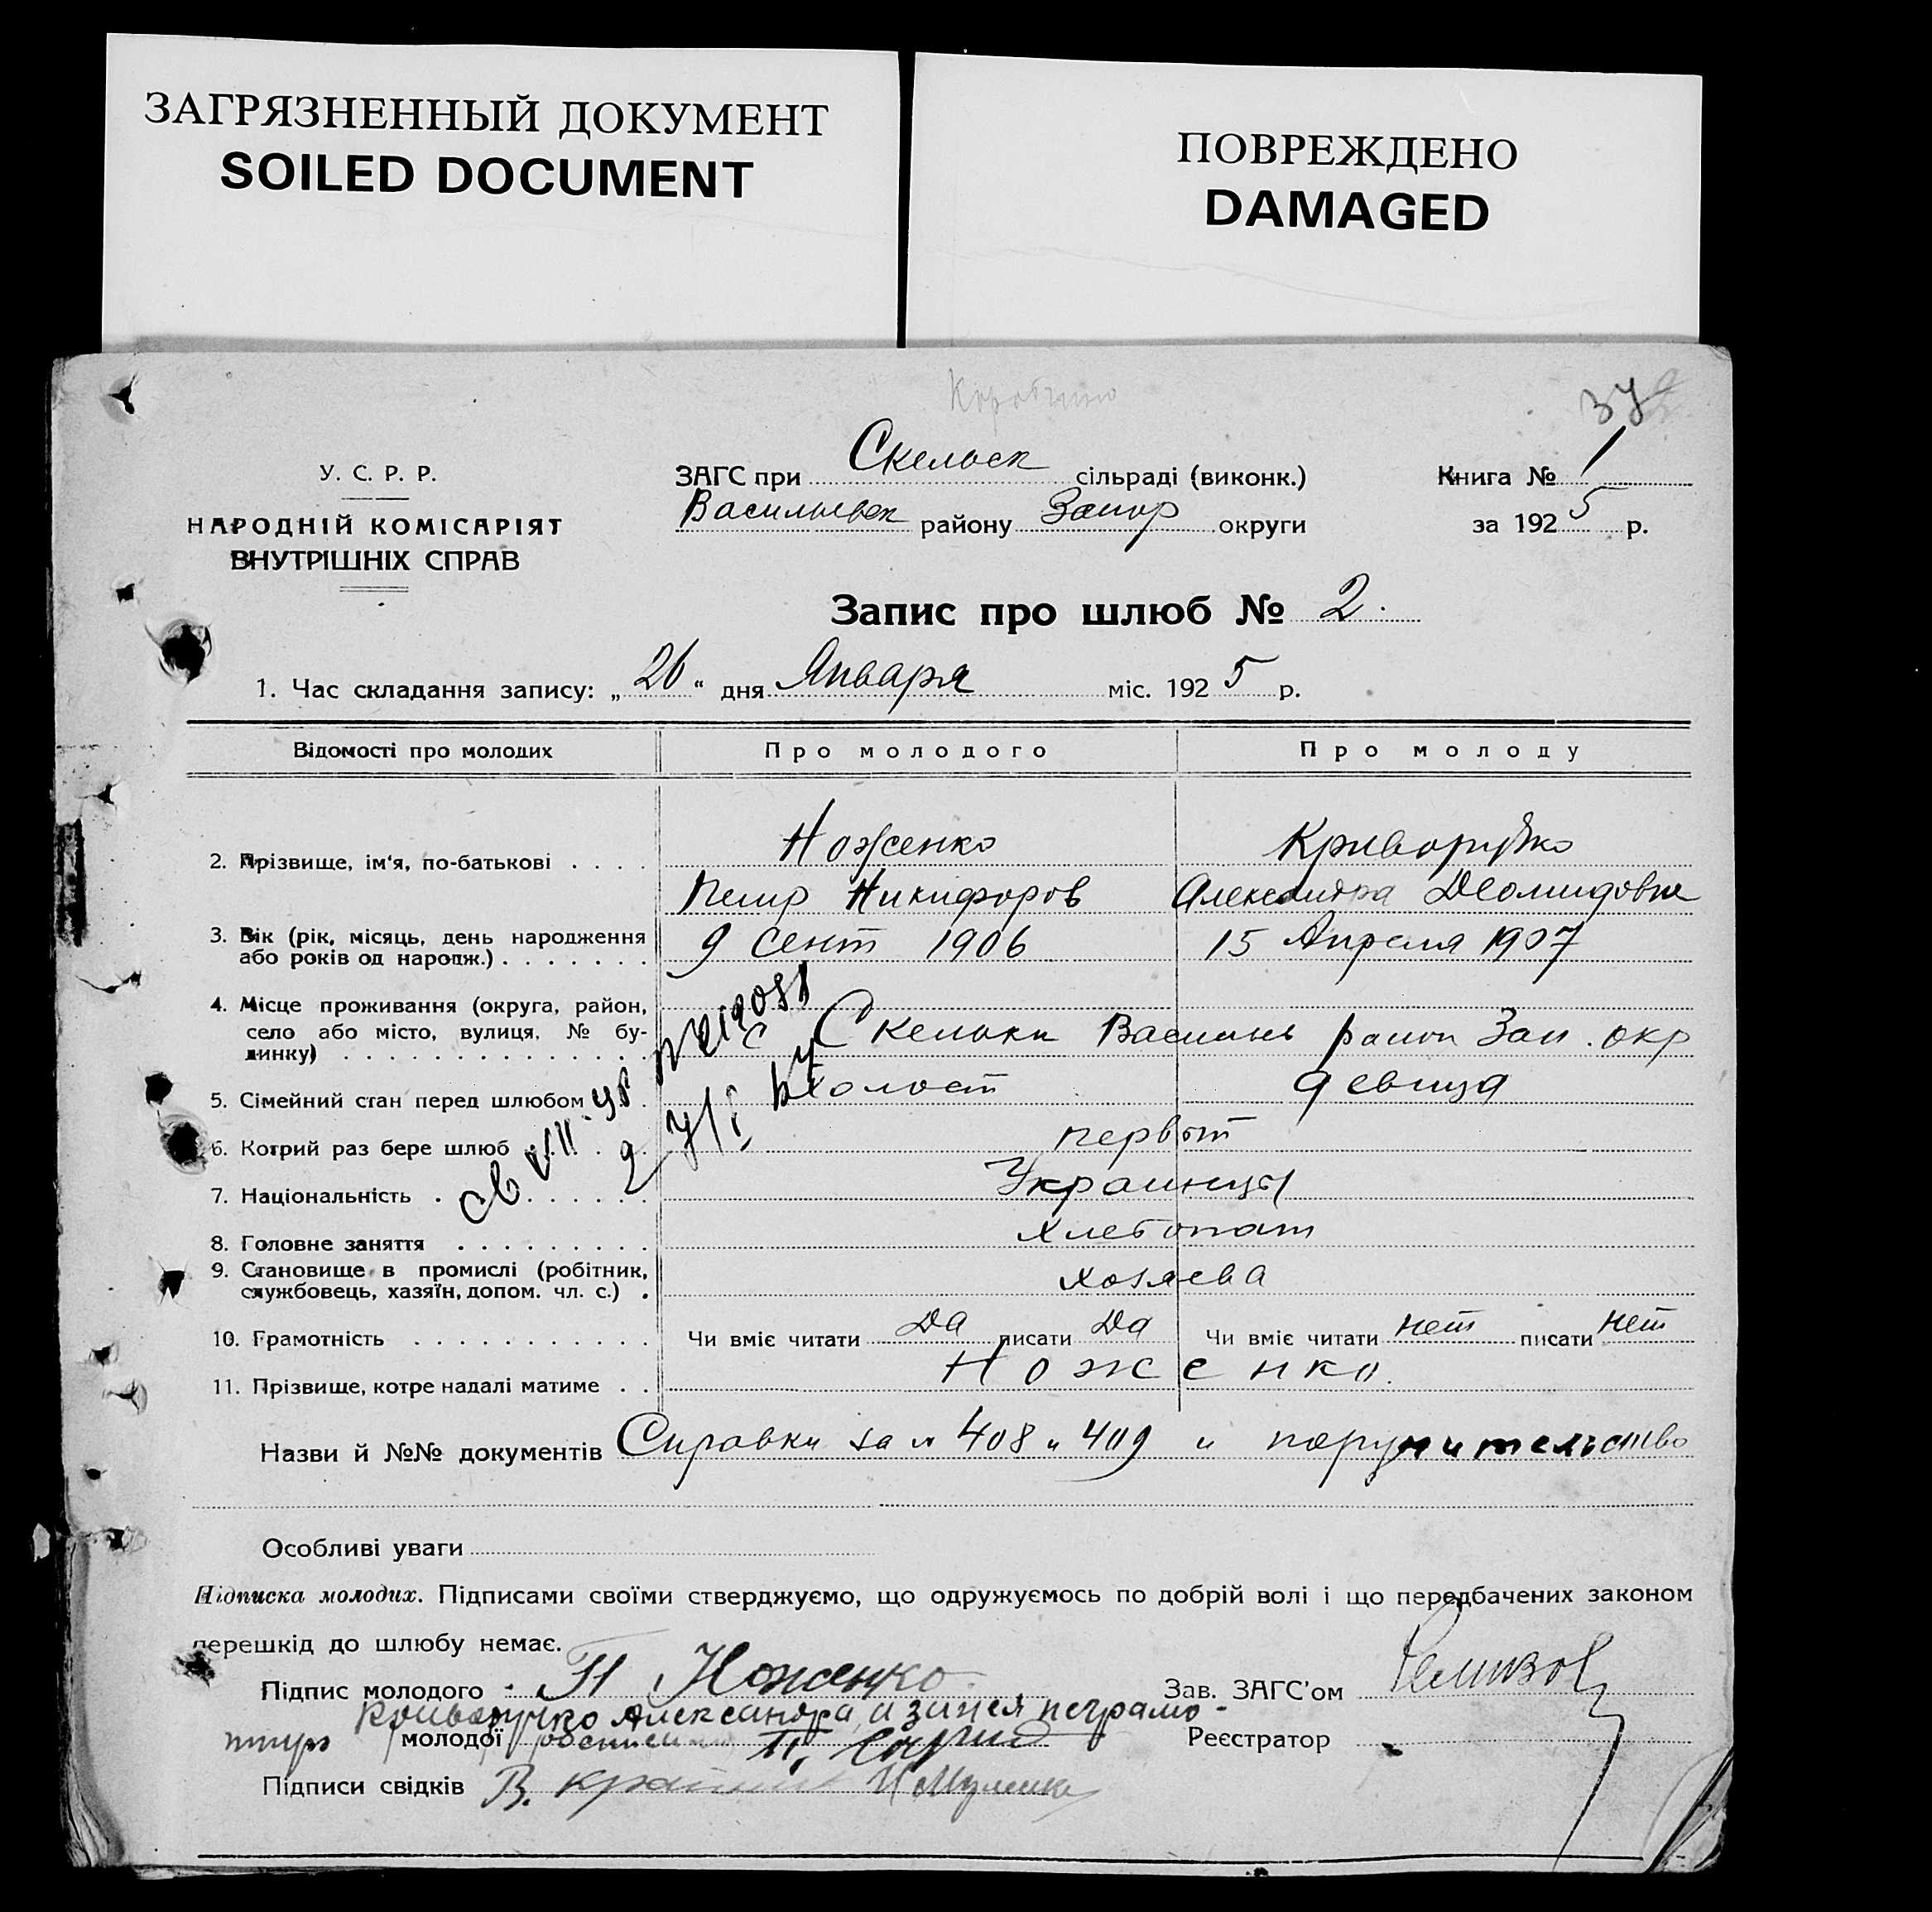 ЗАГРЯЗНЕННЫЙ ДОКУМЕНТ
SOILED DOCUMENT
ПОВРЕЖДЕНО
DAMAGED
У. С. Р. Р.
НАРОДНІЙ КОМІСАРІЯТ
ВНУТРІШНІХ СПРАВ
ЗАГС при Скельск сільраді (виконк.)
Васильевск району Запор округи
Книга № 1
за 1925 р.
Запис про шлюб № 2.
1. Час складання запису: „26“ дня Января міс. 1925 р.
Відомості про молодих Про молодого Про молоду
2. Прізвище, ім'я, по-батькові . . . . Ноженко Криворучко
Петр Никифоров Александра Диомидовна
3. Вік (рік, місяць, день народження
або років од народж.) . . . . . . . 9 Сент 1906 15 Апреля 1907
4. Місце проживання (округа, район,
село або місто, вулиця, № бу-
динку) . . . . . . . . . . . . . . с Скельки Василь район Зап. окр
5. Сімейний стан перед шлюбом . холост девица
6. Котрий раз бере шлюб . . . . первый
7. Національність . . . . . . . . Украинцы
8. Головне заняття . . . . . . . . . хлебопаш
9. Становище в промислі (робітник,
службовець, хазяїн, допом. чл. с.) . хозяева
10. Грамотність . . . . . . . . . . . Чи вміє читати Да писати Да Чи вміє читати нет писати нет
11. Прізвище, котре надалі матиме . . Ноженко.
Назви й №№ документів Справки за № 408 и 409 и поручительство
Особливі уваги
Підписка молодих. Підписами своїми стверджуємо, що одружуємось по добрій волі і що передбачених законом
перешкід до шлюбу немає.
Підпис молодого П Ноженко Зав. ЗАГС'ом
Криворучко Александра, а за нея неграмо-
тную молодої Реєстратор
Підписи свідків В.